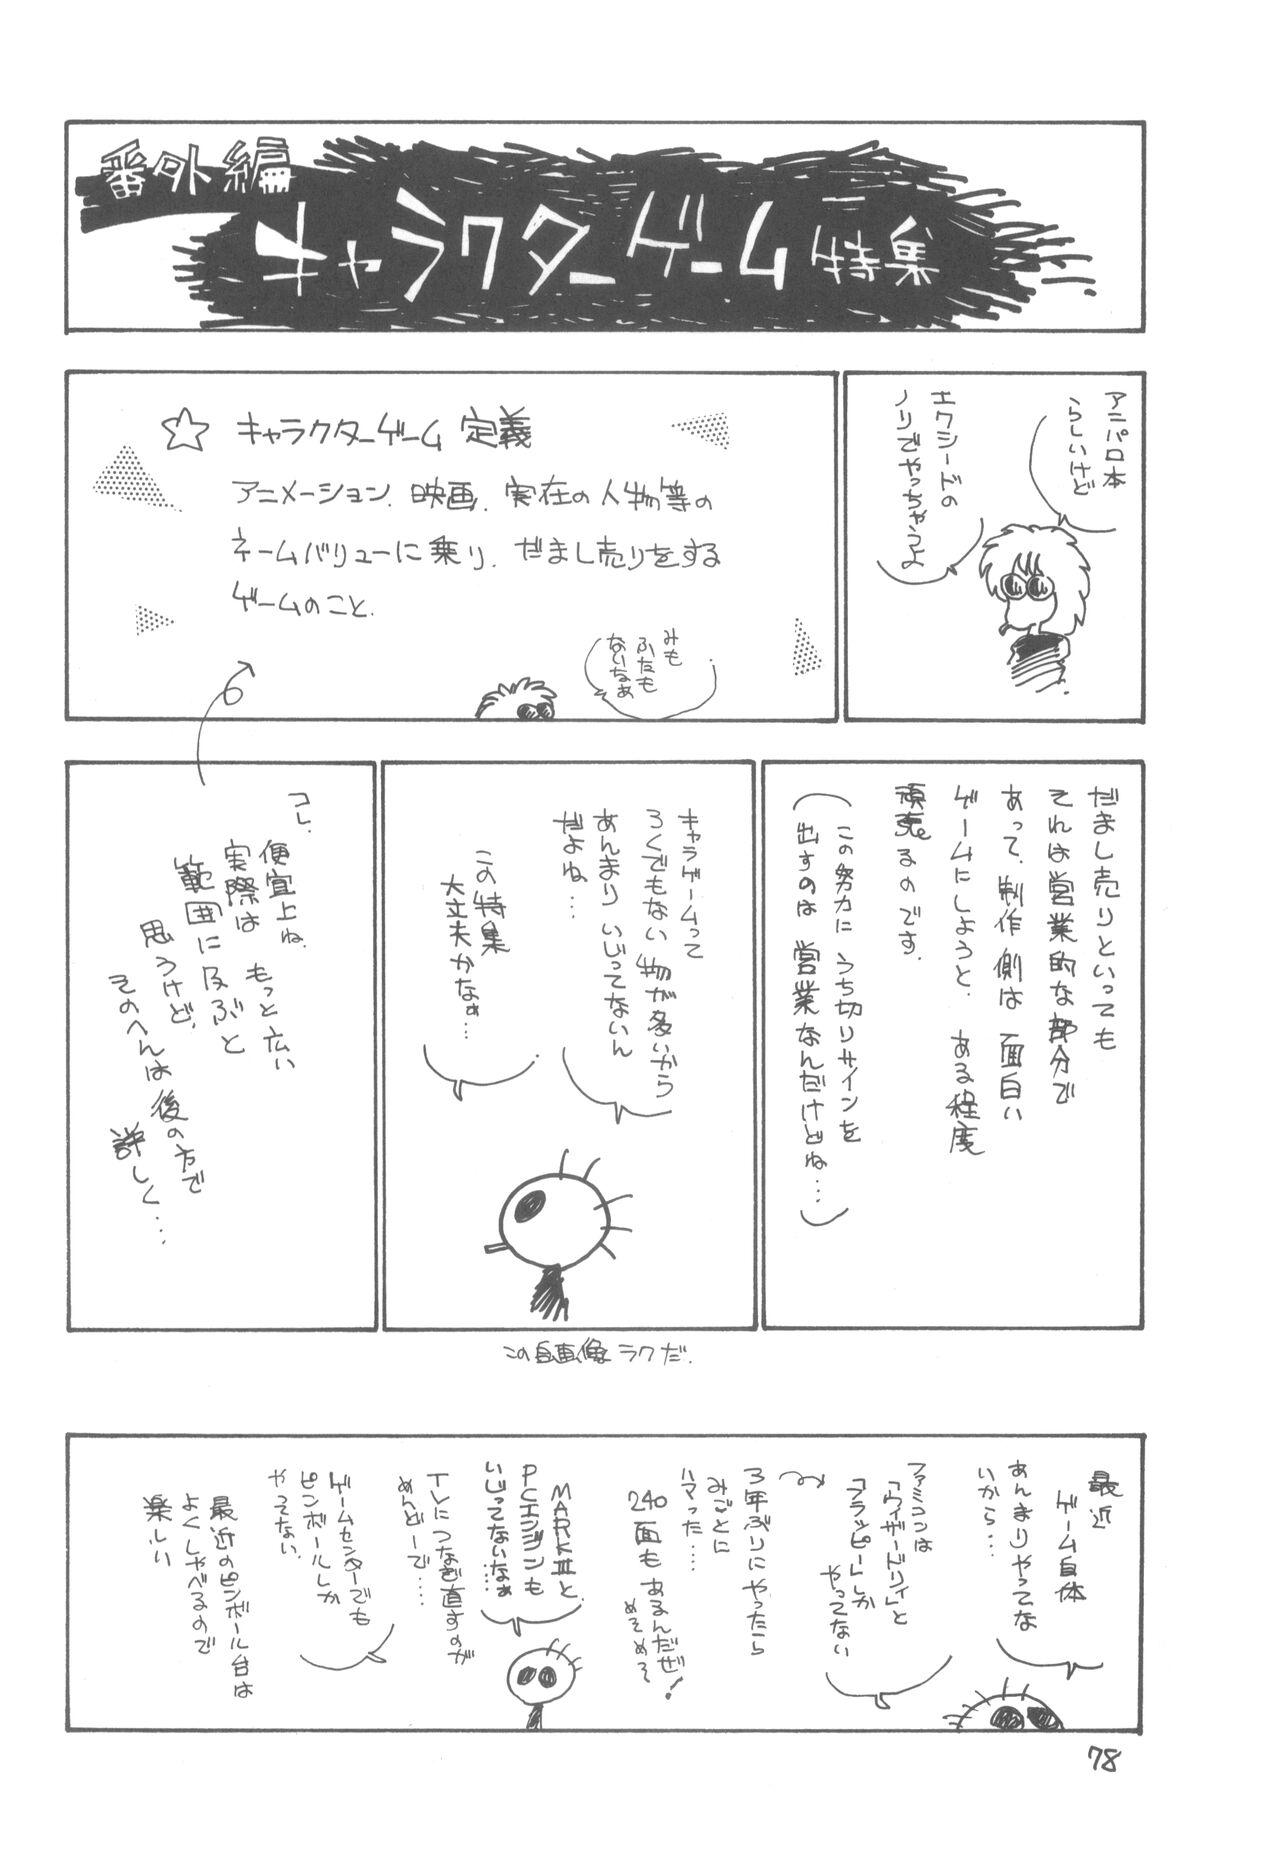 番外編
キャラクターゲーム特集
アニパロ本
らしいけど
エクシードの
ノリでやっちゃうよ
☆ キャラクターゲーム 定義
アニメーション、映画、実在の人物等の
ネームバリューに乗り、だまし売りをする
ゲームのこと.
みも
ふたも
ないなぁ
だまし売りといっても
それは営業的な部分で
あって、制作側は面白い
ゲームにしようと、ある程度
頑張るのです.
(この努力にうち切りサインを
出すのは営業なんだけどね…)
キャラゲームって
ろくでもない物が多いから
あんまりいじってないん
だよね…
この特集
大丈夫かなぁ…
コレ、
便宜上ね、
実際はもっと広い
範囲に及ぶと
思うけど、
そのへんは後の方で
詳しく…
この自画像ラクだ.
最近
ゲーム自体
あんまりやってな
いから…
ファミコンは
「ウィザードリィ」と
「フラッピー」しか
やってない
3年ぶりにやったら
みごとに
ハマった…
240面もあるんだぜ!
めそめそ
MARKⅢと
PCエンジンも
いじってないなぁ…
TVにつなぎ直すのが
めんどーで…
ゲームセンターでも
ピンボールしか
やってない.
最近のピンボール台は
よくしゃべるので
楽しい
78